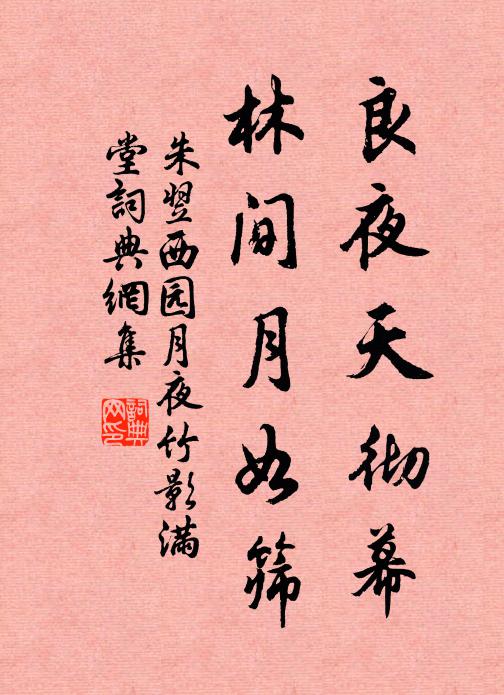 良夜天彻幕
林间月如筛
朱翌西园月夜竹影满
堂詞典網集
詞典网印